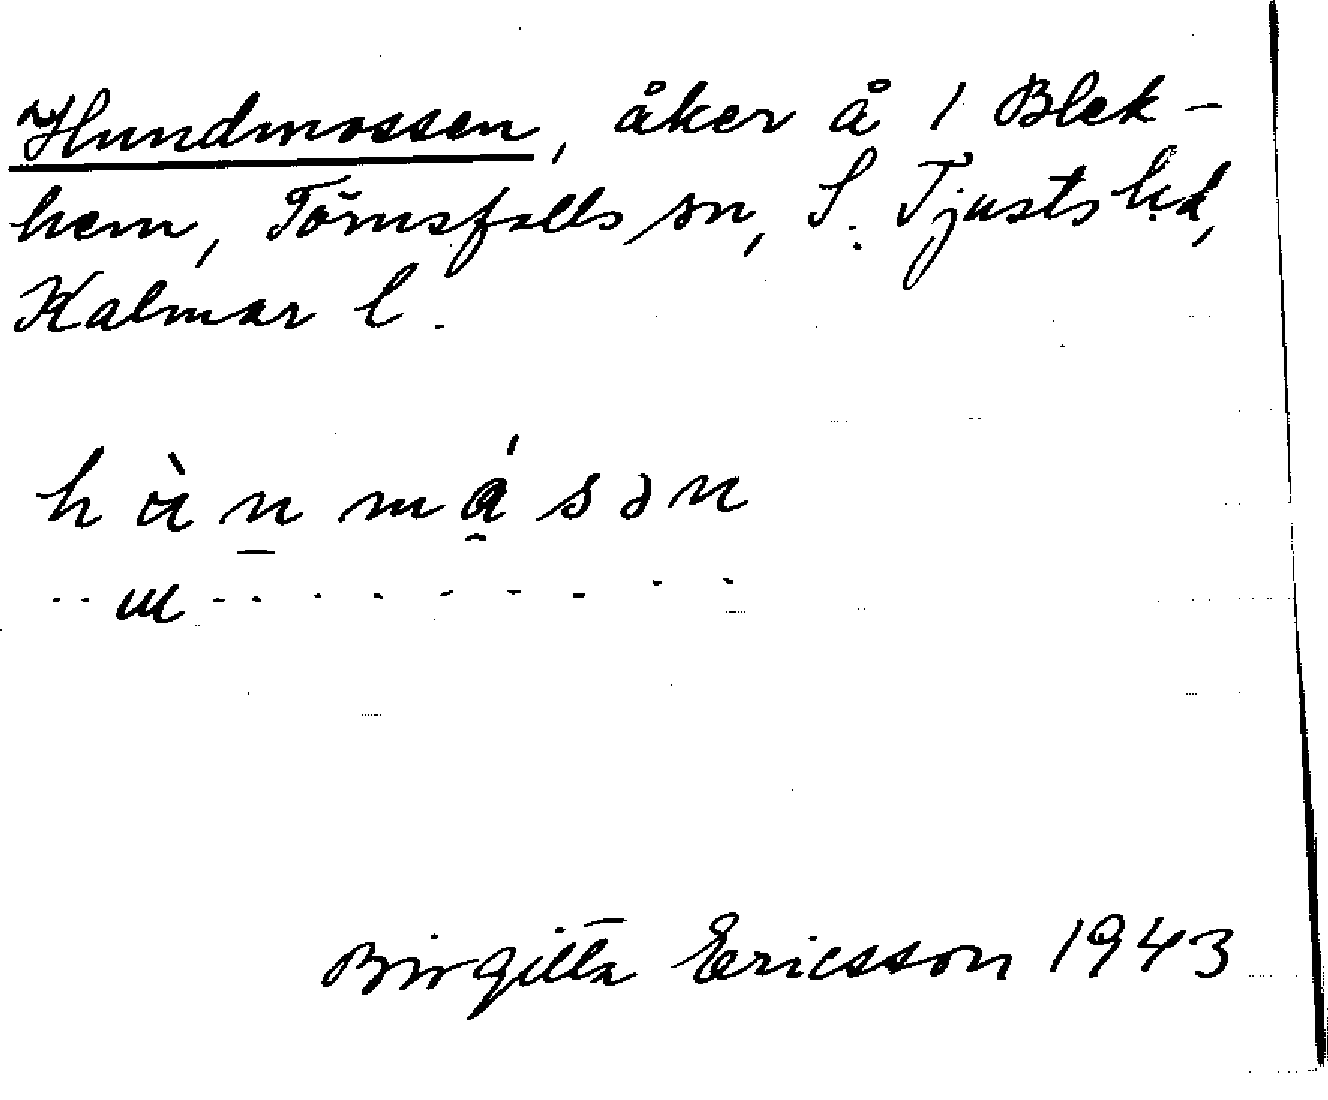 Hundmossen, åker å 1 Blek-
hem, Törnsfalls sn, S. Tjusts hd,
Kalmar l.
Birgitta Ericsson 1943